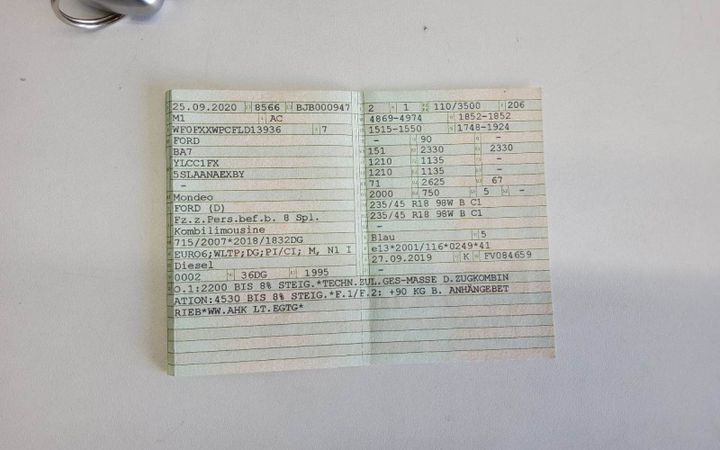 25.09.2020 8566 BJB000947
M1 AC
WF0FXXWPCFLD13936 7
FORD
BA7
YLCC1FX
5SLAANAEXBY
-
Mondeo
FORD (D)
Fz.z.Pers.bef.b. 8 Spl.
Kombilimousine
715/2007*2018/1832DG
EURO6;WLTP;DG;PI/CI; M, N1 I
Diesel
0002 36DG 1995
2 1 110/3500 206
4869-4974 1852-1852
1515-1550 1748-1924
- 90 -
151 2330 2330
1210 1135 -
1210 1135 -
71 2625 67
2000 750 5 -
235/45 R18 98W B C1
235/45 R18 98W B C1
-
Blau 5
e13*2001/116*0249*41
27.09.2019 K FV084659
-
O.1:2200 BIS 8% STEIG.*TECHN.ZUL.GES-MASSE D.ZUGKOMBIN
ATION:4530 BIS 8% STEIG.*F.1/F.2: +90 KG B. ANHÄNGEBET
RIEB*WW.AHK LT.EGTG*